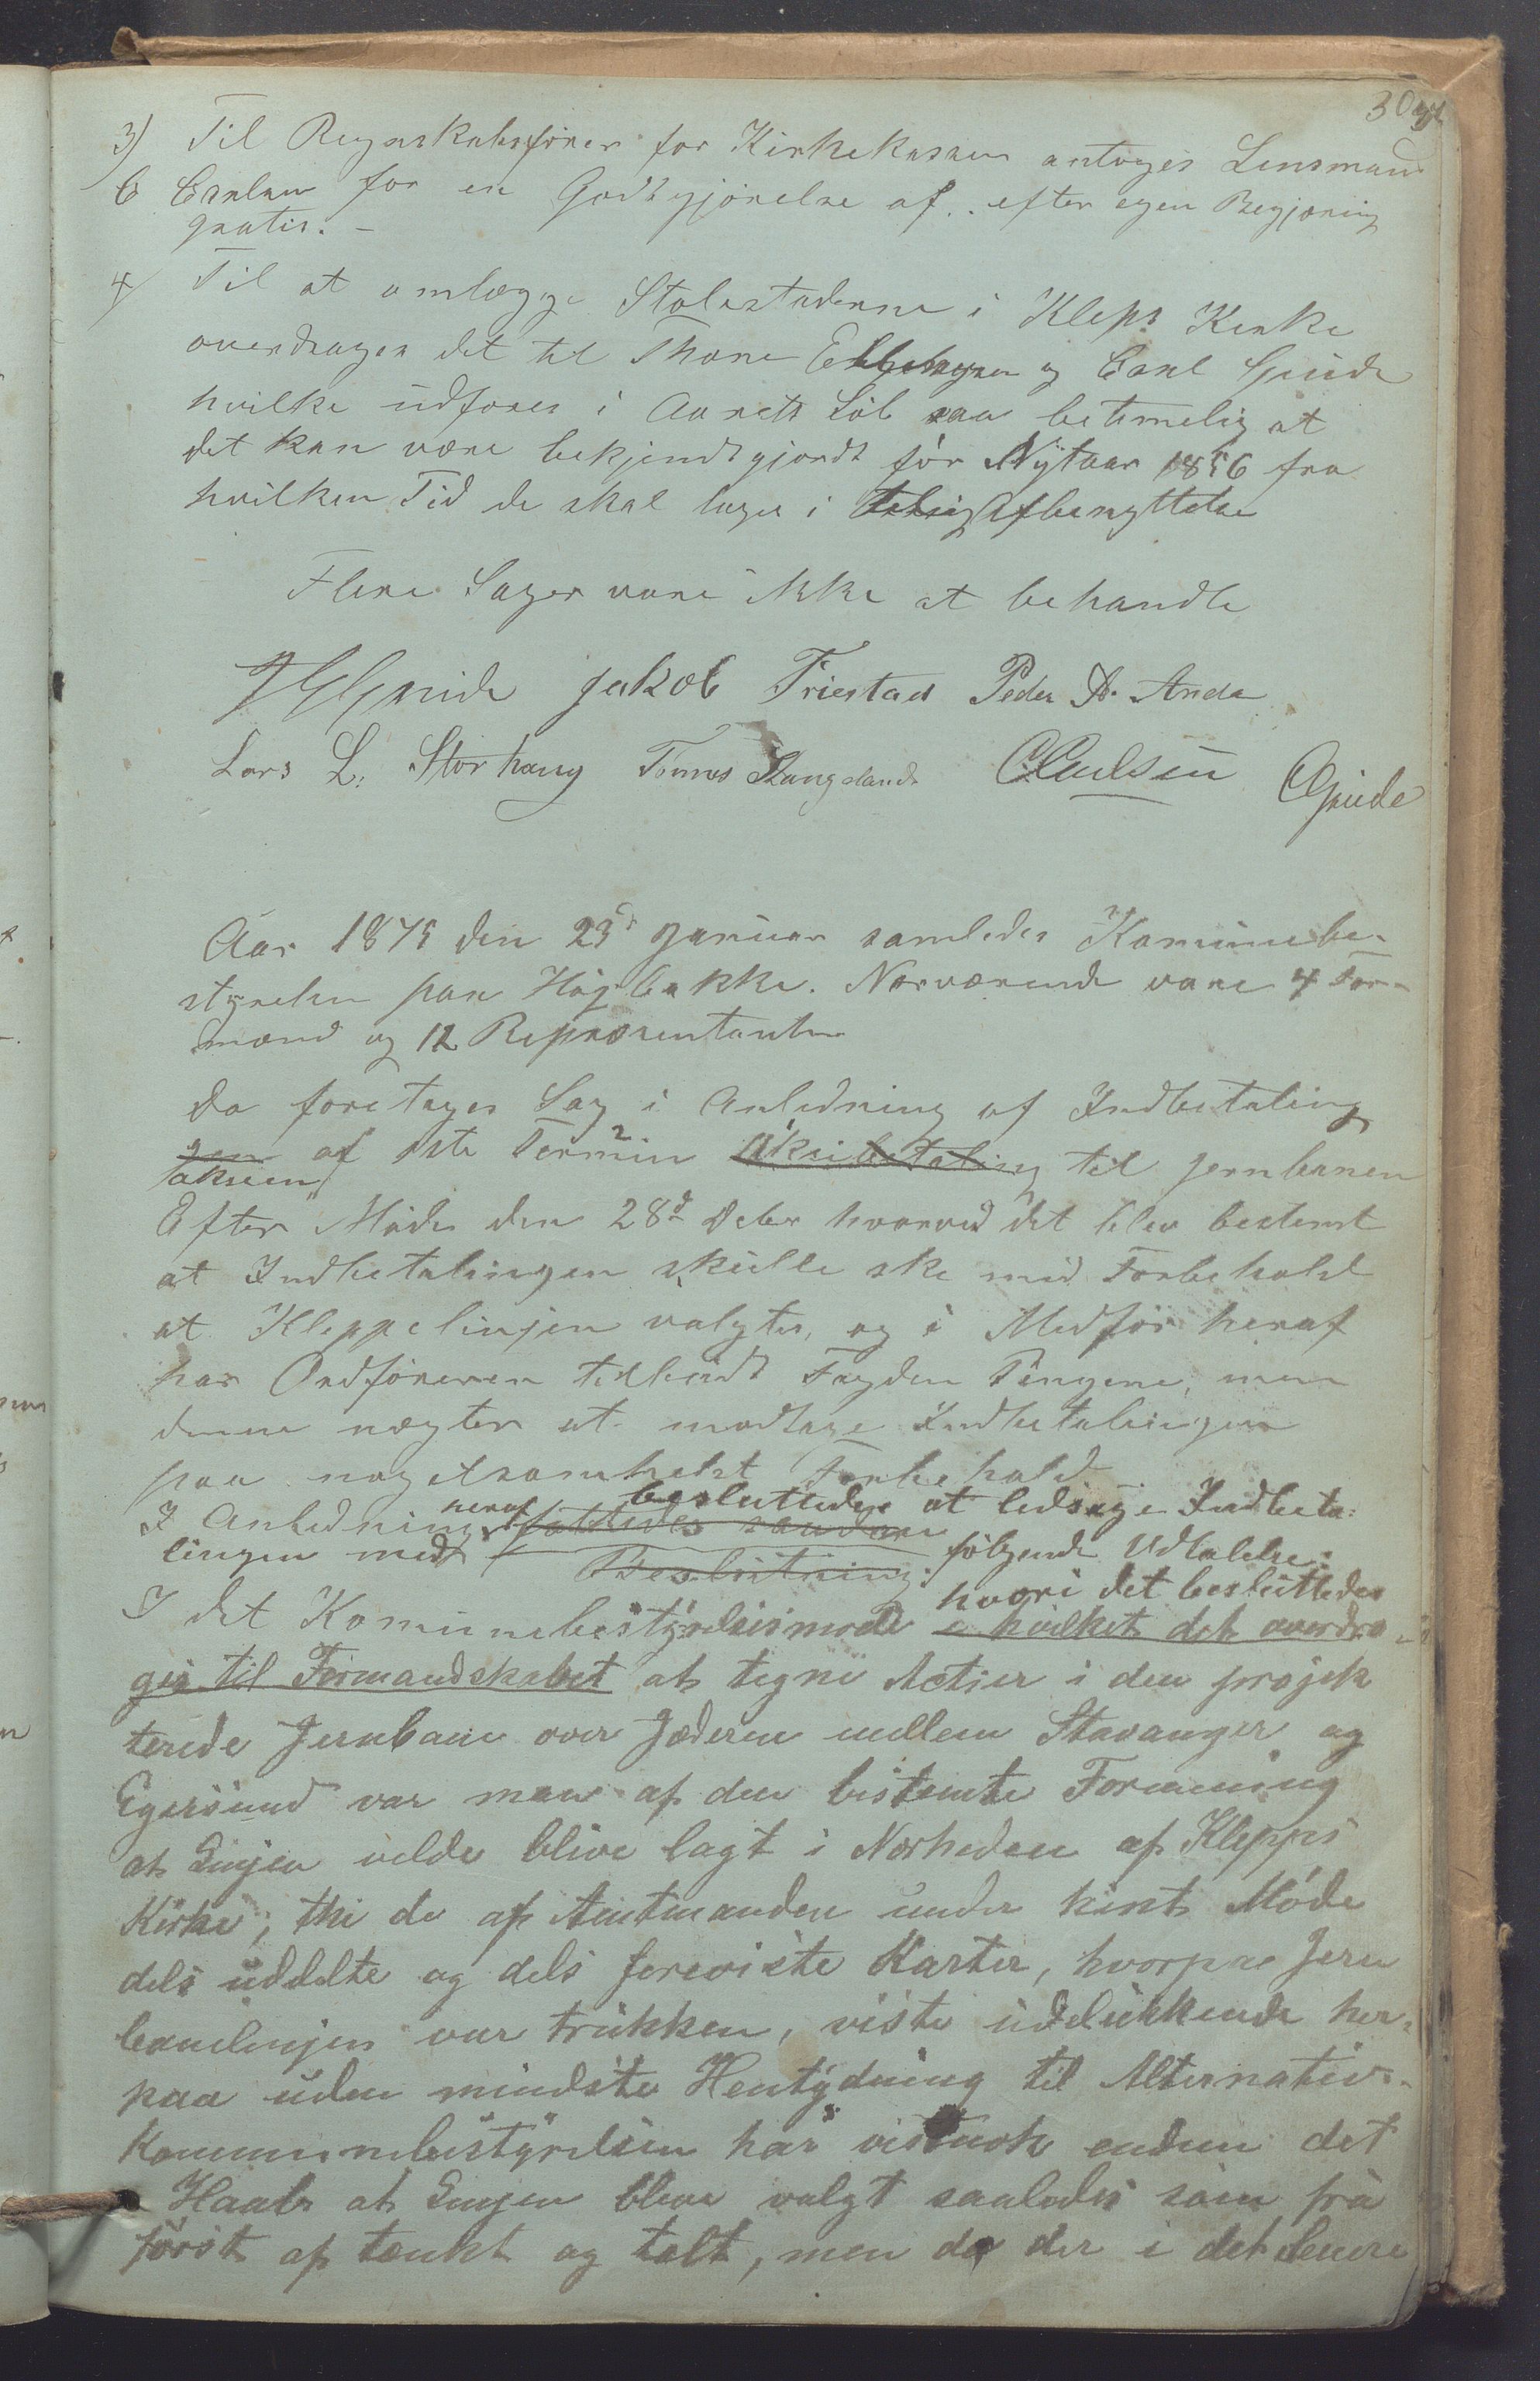 30
3) Til Regnskabsfører for Kirkekassen antoges Lensmand
C Carlsen for en Godtgjørelse af .. efter egen Begjæring
gratis. -
4) Til at omlægge Stolestaderne i Kleps Kirke
overdrages det til Thore og Carl Grude
hvilke udføres i Aarets Løb saa betimelig at
det kan være bekjendtgjordt før Nytaar 1876 fra
hvilken Tid de skal tages i Afbenyttelse
Flere Sager vare ikke at behandle
Grude Jakob Friestad Peder A. Anda
Lars L. Storhaug Tønnes Stangeland C Carlsen C Grude
Aar 1875 den 23d Januar samledes Kommunebe-
styrelsen paa Høgbakke. Nærværende vare 4 For-
mænd og 12 Repræsentanter
Da foretages Sag i Anledning af Indbetaling
gen af 1ste Termin Aksiebetaling til Jernbanen
aksien
Efter Møde den 28d Deber hvorved det blev bestemt
at Indbetalingen skulle ske med Forbehold
at Kleppelinjen valgtes, og i Medfør heraf
har Ordføreren tilbudt Fogden Pengene, men
denne nægter at modtage Indbetalingen
paa nogetsomhelst Forbehold
I Anledning heraf fattedes saadan besluttedes at ledsage Indbeta-
lingen med Beslutning: følgende Udtalelse:
I det Kommunebestyrelsesmøde i hvilket det overdro- hvori det besluttedes
ges til Formandskabet at tegne Actier i den projek
terede Jernbane over Jæderen mellem Stavanger og
Egersund var man af den bestemte Formening
at Linjen vilde blive lagt i Nærheden af Klepps
Kirke, thi de af Amtmanden under hint Møde
dels uddelte og dels foreviste Karter, hvorpaa Jern
banelinjen var trukken, viste udelukkende her-
paa uden mindste Hentydning til Alternativ.-
Kommunebestyrelsen har vistnok endnu det
Haab at Linjen bliver valgt saaledes som fra
først af tænkt og talt, men da der i det senere